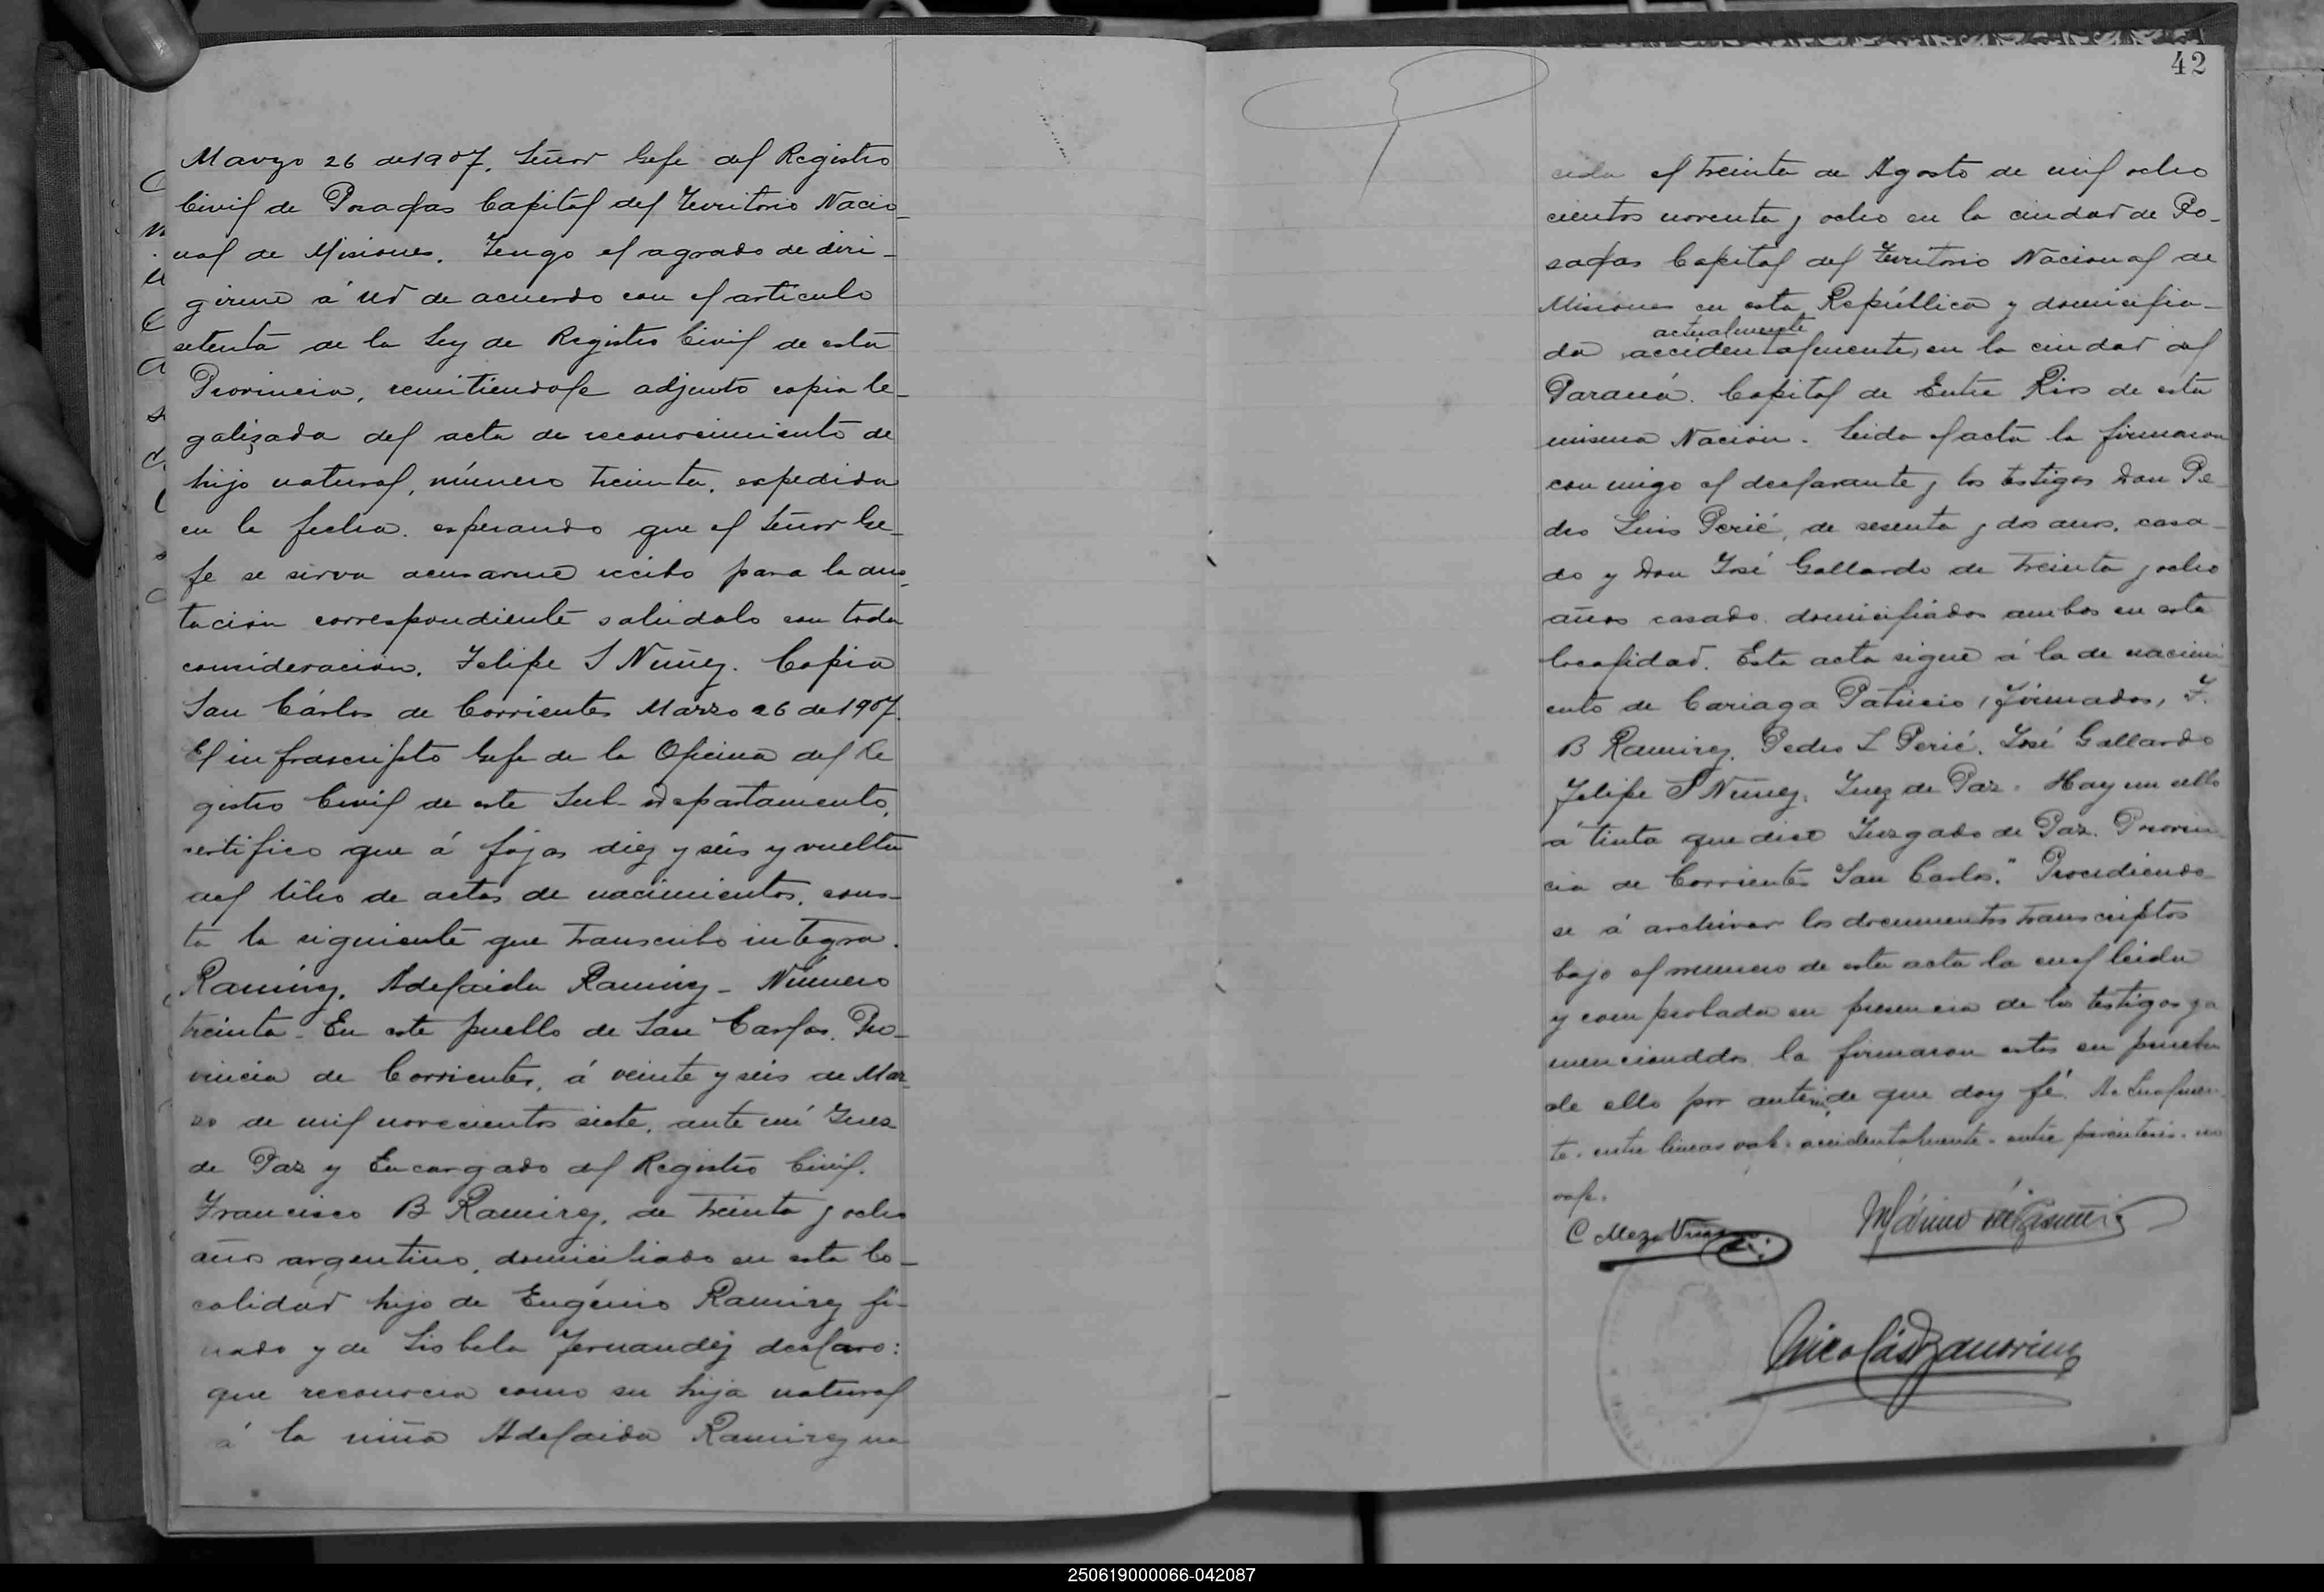 Marzo 26 de 1907. Señor Gefe del Registro
Civil de Posadas Capital del Territorio Nacio_
nal de Misiones. Tengo el agrado de diri_
girme á Ud de acuerdo con el artículo
setenta de la Ley de Registro Civil de esta
Provincia, remitiendole adjunto copia le_
galizada del acta de reconocimiento de
hijo natural, número treinta, expedida
en la fecha. esperando que el Señor Ge_
fe se sirva acusarme recibo para la ano_
tacion correspondiente saludalo con toda
consideracion. Felipe S Nuñez. Copia
San Cárlos de Corrientes Marzo 26 de 1907.
El infrascripto Gefe de la Oficina del Re
gistro Civil de este Sub-Departamento,
certifico que á fojas diez y seis y vuelta
del libro de actas de nacimientos, cons_
ta la siguiente que transcribo integra.
Ramirez, Adelaida Ramirez _ Número
treinta _ En este pueblo de San Carlos, Pro_
vincia de Corrientes, á veinte y seis de Mar_
zo de mil novecientos siete, ante mi Juez
de Paz y Encargado del Registro Civil.
Francisco B Ramirez, de treinta y ocho
años argentino, domiciliado en esta lo_
calidad hijo de Eugénio Ramirez fi_
nado y de Lisbela Fernandez declaro:
que reconocia como su hija natural
á la niña Adelaida Ramirez na
42
cida el treinta de Agosto de mil ocho
cientos noventa y ocho en la ciudad de Po_
sadas Capital del Territorio Nacional de
Misiones en esta República y domicilia_
actualmente
da (accidentalmente) en la ciudad del
Paraná. Capital de Entre Rios de esta
misma Nacion. Leida el acta la firmaron
con migo el declarante y los testigos Don Pe
dro Luis Perié, de sesenta y dos anos, casa_
do y Don José Gallardo de treinta y ocho
años casado. domiciliados ambos en esta
localidad. Esta acta sigue á la de nacimi
ento de Cariaga Patricio (Firmados) F.
B Ramirez. Pedro L Perié. José Gallardo
Felipe S Nuñez. Juez de Paz. Hay un sello
á tinta que dice Juzgado de Paz. Provin_
cia de Corrientes San Carlos." Procediendo
se á archivar los documentos transcriptos
bajo el numero de esta acta la cual leida
y comprobada en presencia de los testigos ya
mencionados. la firmaron estos en prueba
de ello por ante mi, de que doy fé. Actualmen_
te. entre lineas vale. accidentalmente. entre paréntesis. no
vale.
C Meza
250619000066-042087